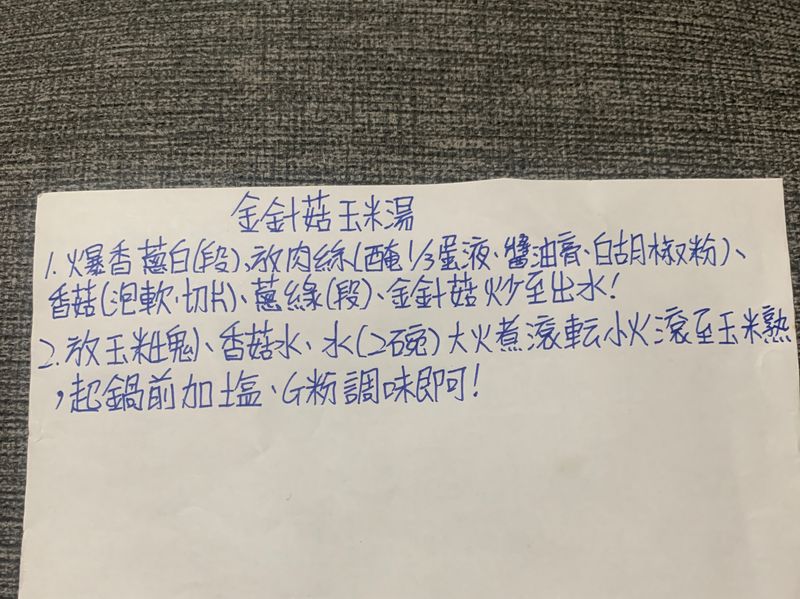 金針菇玉米湯
1. 爆香蔥白(段)、放肉絲(醃1/3蛋液、醬油膏、白胡椒粉)、
香菇(泡軟.切片)、蔥綠(段)、金針菇炒至出水!
2. 放玉米(塊)、香菇水、水(2碗)大火煮滾転小火滾至玉米熟
，起鍋前加塩、G粉調味即可!